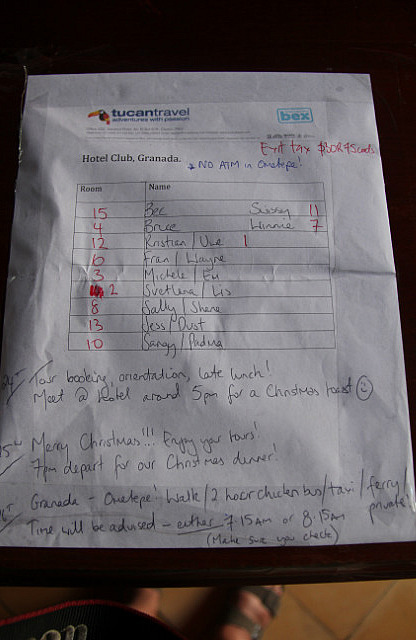 tucantravel
adventures with passion
bex
Exit tax $30R 45cords
Hotel Club, Granada.
* NO ATM in Ometepe!
Room Name
15 Bec Sussey 11
4 Bruce Winnie 7
12 Kristian / Uue 1
6 Fran / Wayne
3 Michele / Eu
2 Svetlena / Lis
8 Sally / Shane
13 Jess / Dust
10 Sangy / Padma
24th Tour booking, orientation, late lunch!
Meet @ Hotel around 5pm for a Christmas toast ☺
15th Merry Christmas!!! Enjoy your tours!
7pm depart for our Christmas dinner!
Granada - Ometepe! Walk / 2 hour chicken bus / taxi / ferry / private
Time will be advised - either 7.15AM or 8.15AM
(Make sure you check)